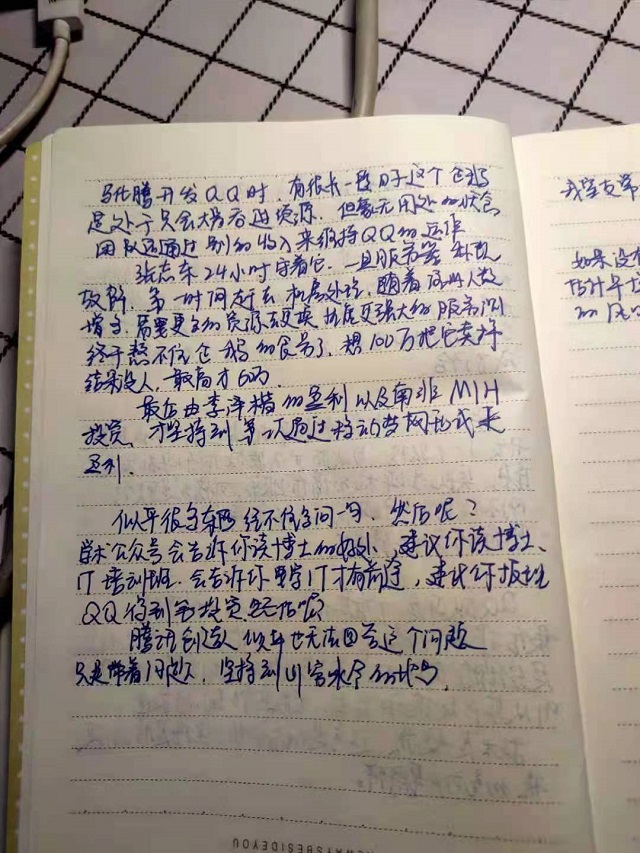 马化腾开发QQ时，有很长一段时于这个企鹅
是处于只会大吞进资源，但毫无用处的状态
团队还通过别的收入来维持QQ的运作
张志东24小时守着它，一旦服务器
故障，第一时间赶去机房处理，随着用户人数
增多，需要更多的资源去更换性能更强大的服务
终于熬不住企鹅的食量了，想100万把它卖掉
结果没人，最高才60万．
最后由李泽楷的盈利以及南非MIH
投资，才坚持到第一次通过移动梦网形式来
盈利．
似乎很多东西经不住多问一句，然后呢？
学术公众号会告诉你读博士的好处，建议你读博士、
IT培训班，会告诉你要学IT才有前途，建议你报班
QQ得到笔投资，然后呢
腾讯创始人似乎也无法回答这个问题
只是带着问题，坚持到
我
如果没有
估计
YSBESIDEYOU